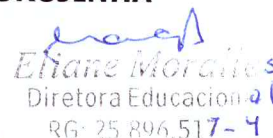 Eliane Moralles
Diretora Educacional
RG: 25.896.517-4